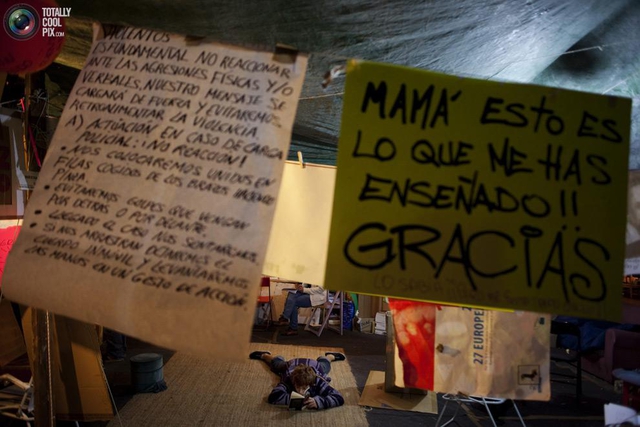 TOTALLY
COOL
PIX
VIOLENTOS
ES FUNDAMENTAL NO REACCIONAR
ANTE LAS AGRESIONES FÍSICAS Y/O
VERBALES, NUESTRO MENSAJE SE
CARGARÁ DE FUERZA Y EVITAREMOS
RETROALIMENTAR LA VIOLENCIA.
A) ACTUACIÓN EN CASO DE CARGA
POLICIAL: ¡NO REACCIÓN!
• NOS COLOCAREMOS UNIDOS EN
FILAS COGIDOS DE LOS BRAZOS HACIENDO
PIÑA
• EVITAREMOS GOLPES QUE VENGAN
POR DETRÁS O POR DELANTE.
• LLEGADO EL CASO NOS SENTAREMOS
• SI NOS ARRASTRAN DEJAREMOS EL
CUERPO INMÓVIL / LEVANTAREMOS
LAS MANOS EN UN GESTO DE
MAMÁ ESTO ES
LO QUE ME HAS
ENSEÑADO!!
GRACIAS
27 EUROPE